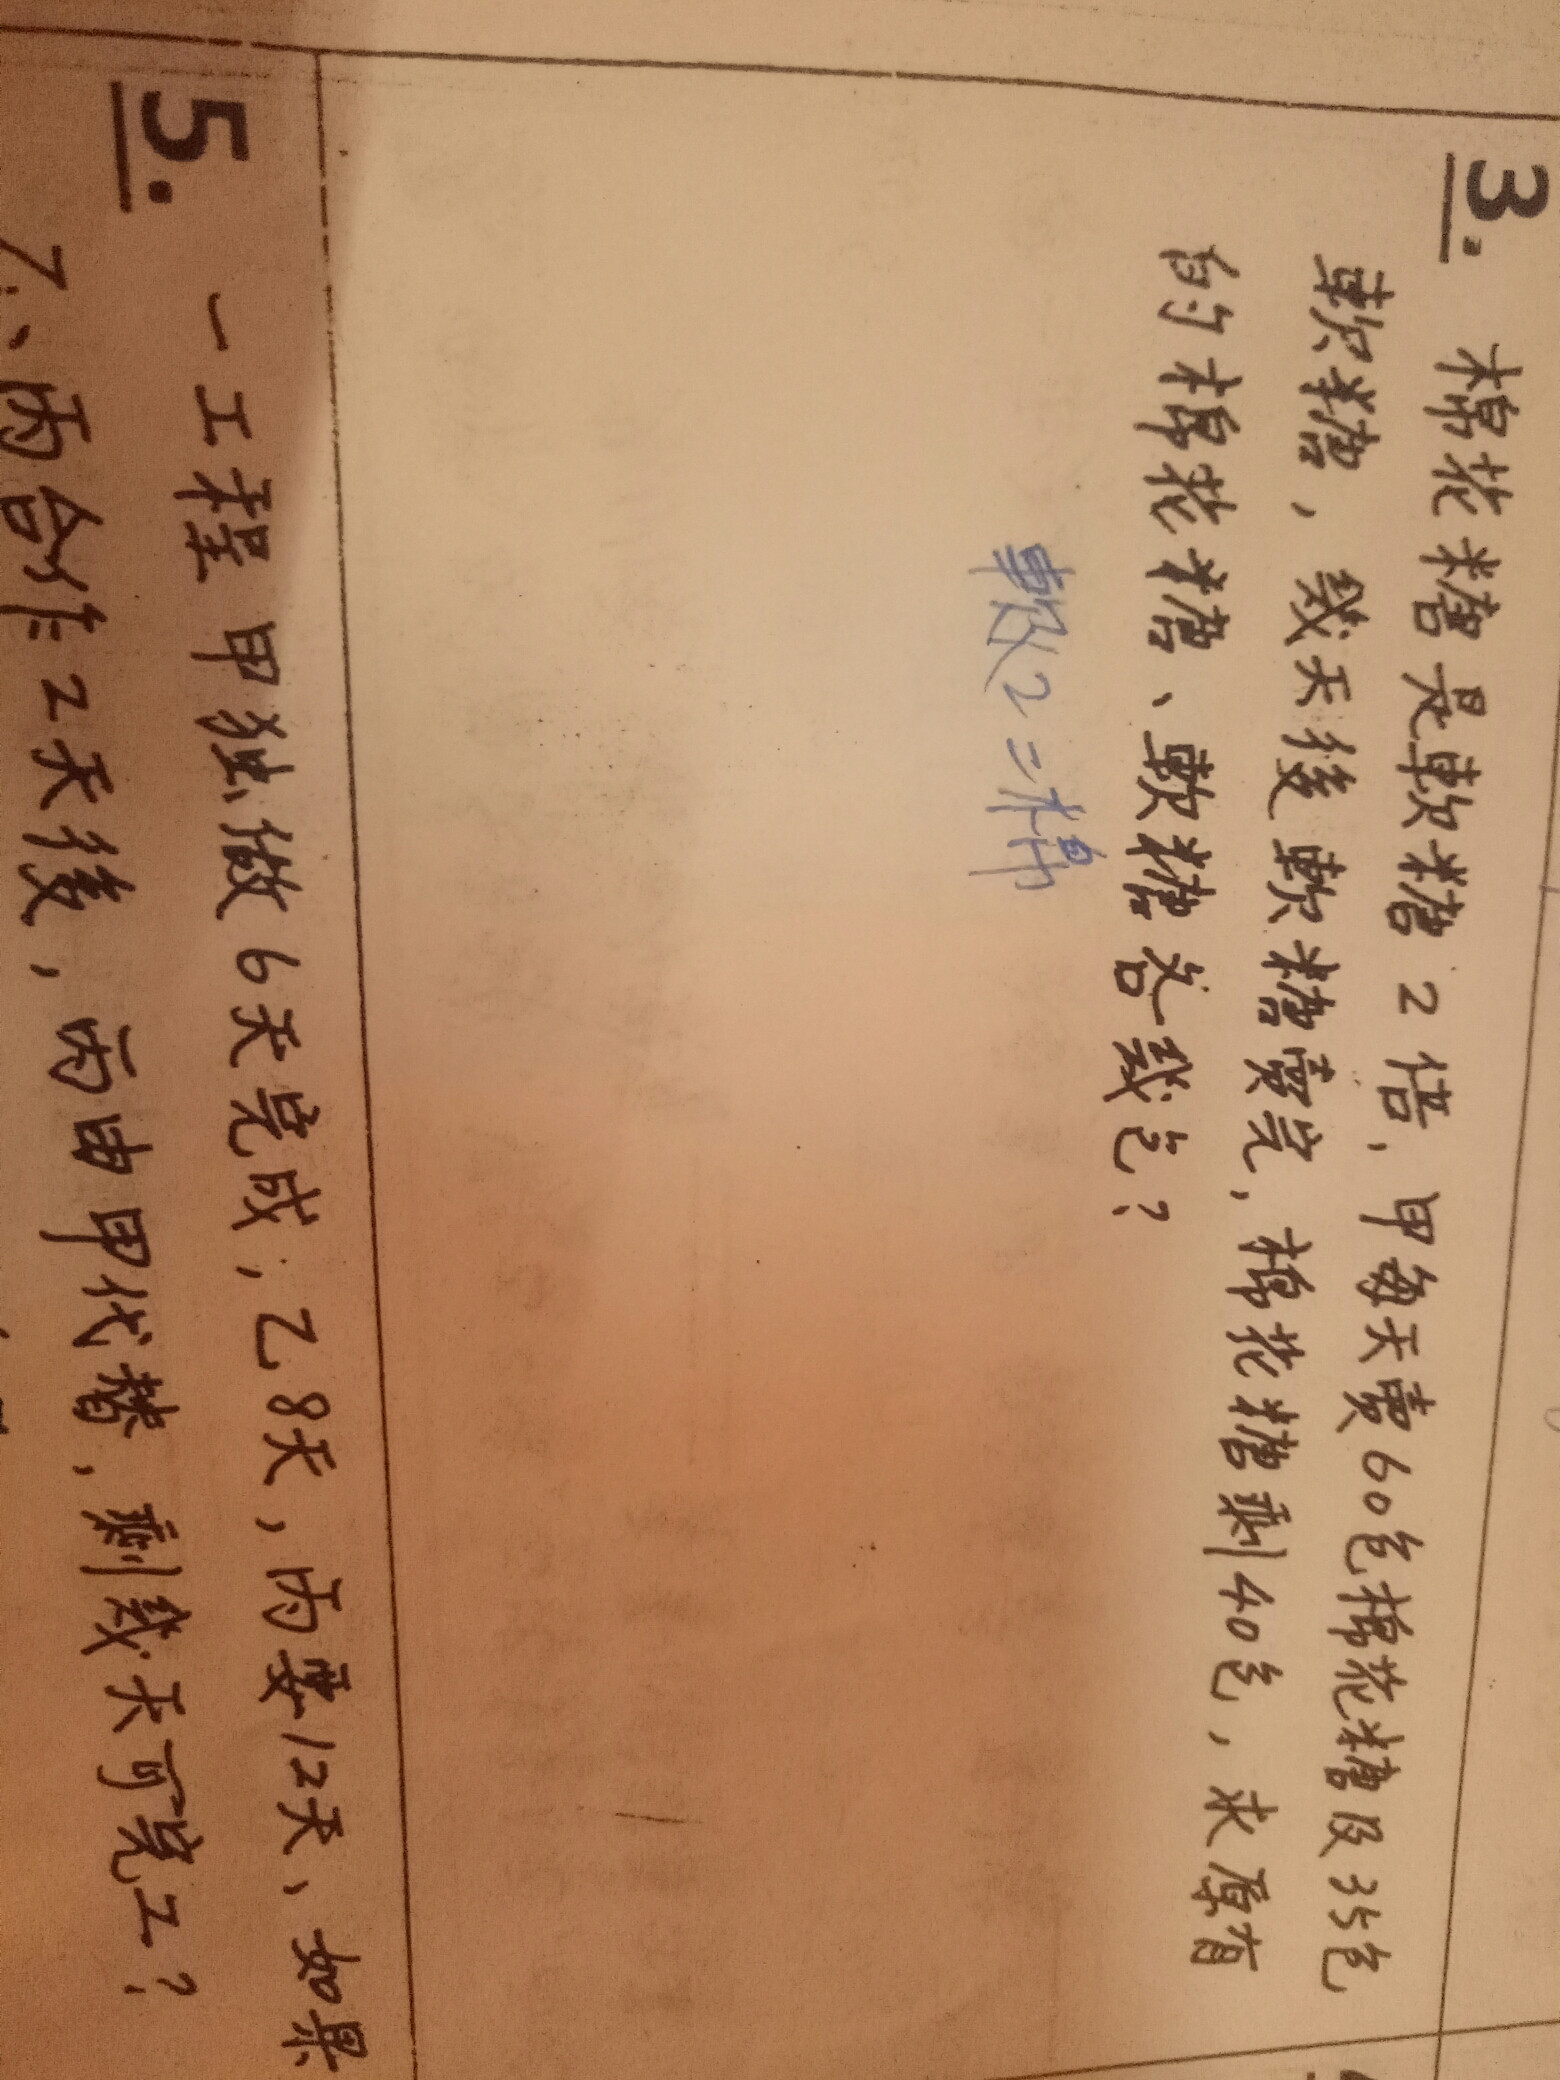 3. 棉花糖是軟糖2倍,甲每天賣60包棉花糖及35包
軟糖,幾天後軟糖賣完,棉花糖剩40包,求原有
的棉花糖、軟糖各幾包?
軟2=棉
5. 一工程甲独做6天完成;乙8天,丙要12天、如果
乙、丙合作2天後,丙由甲代替,剩幾天可完工?